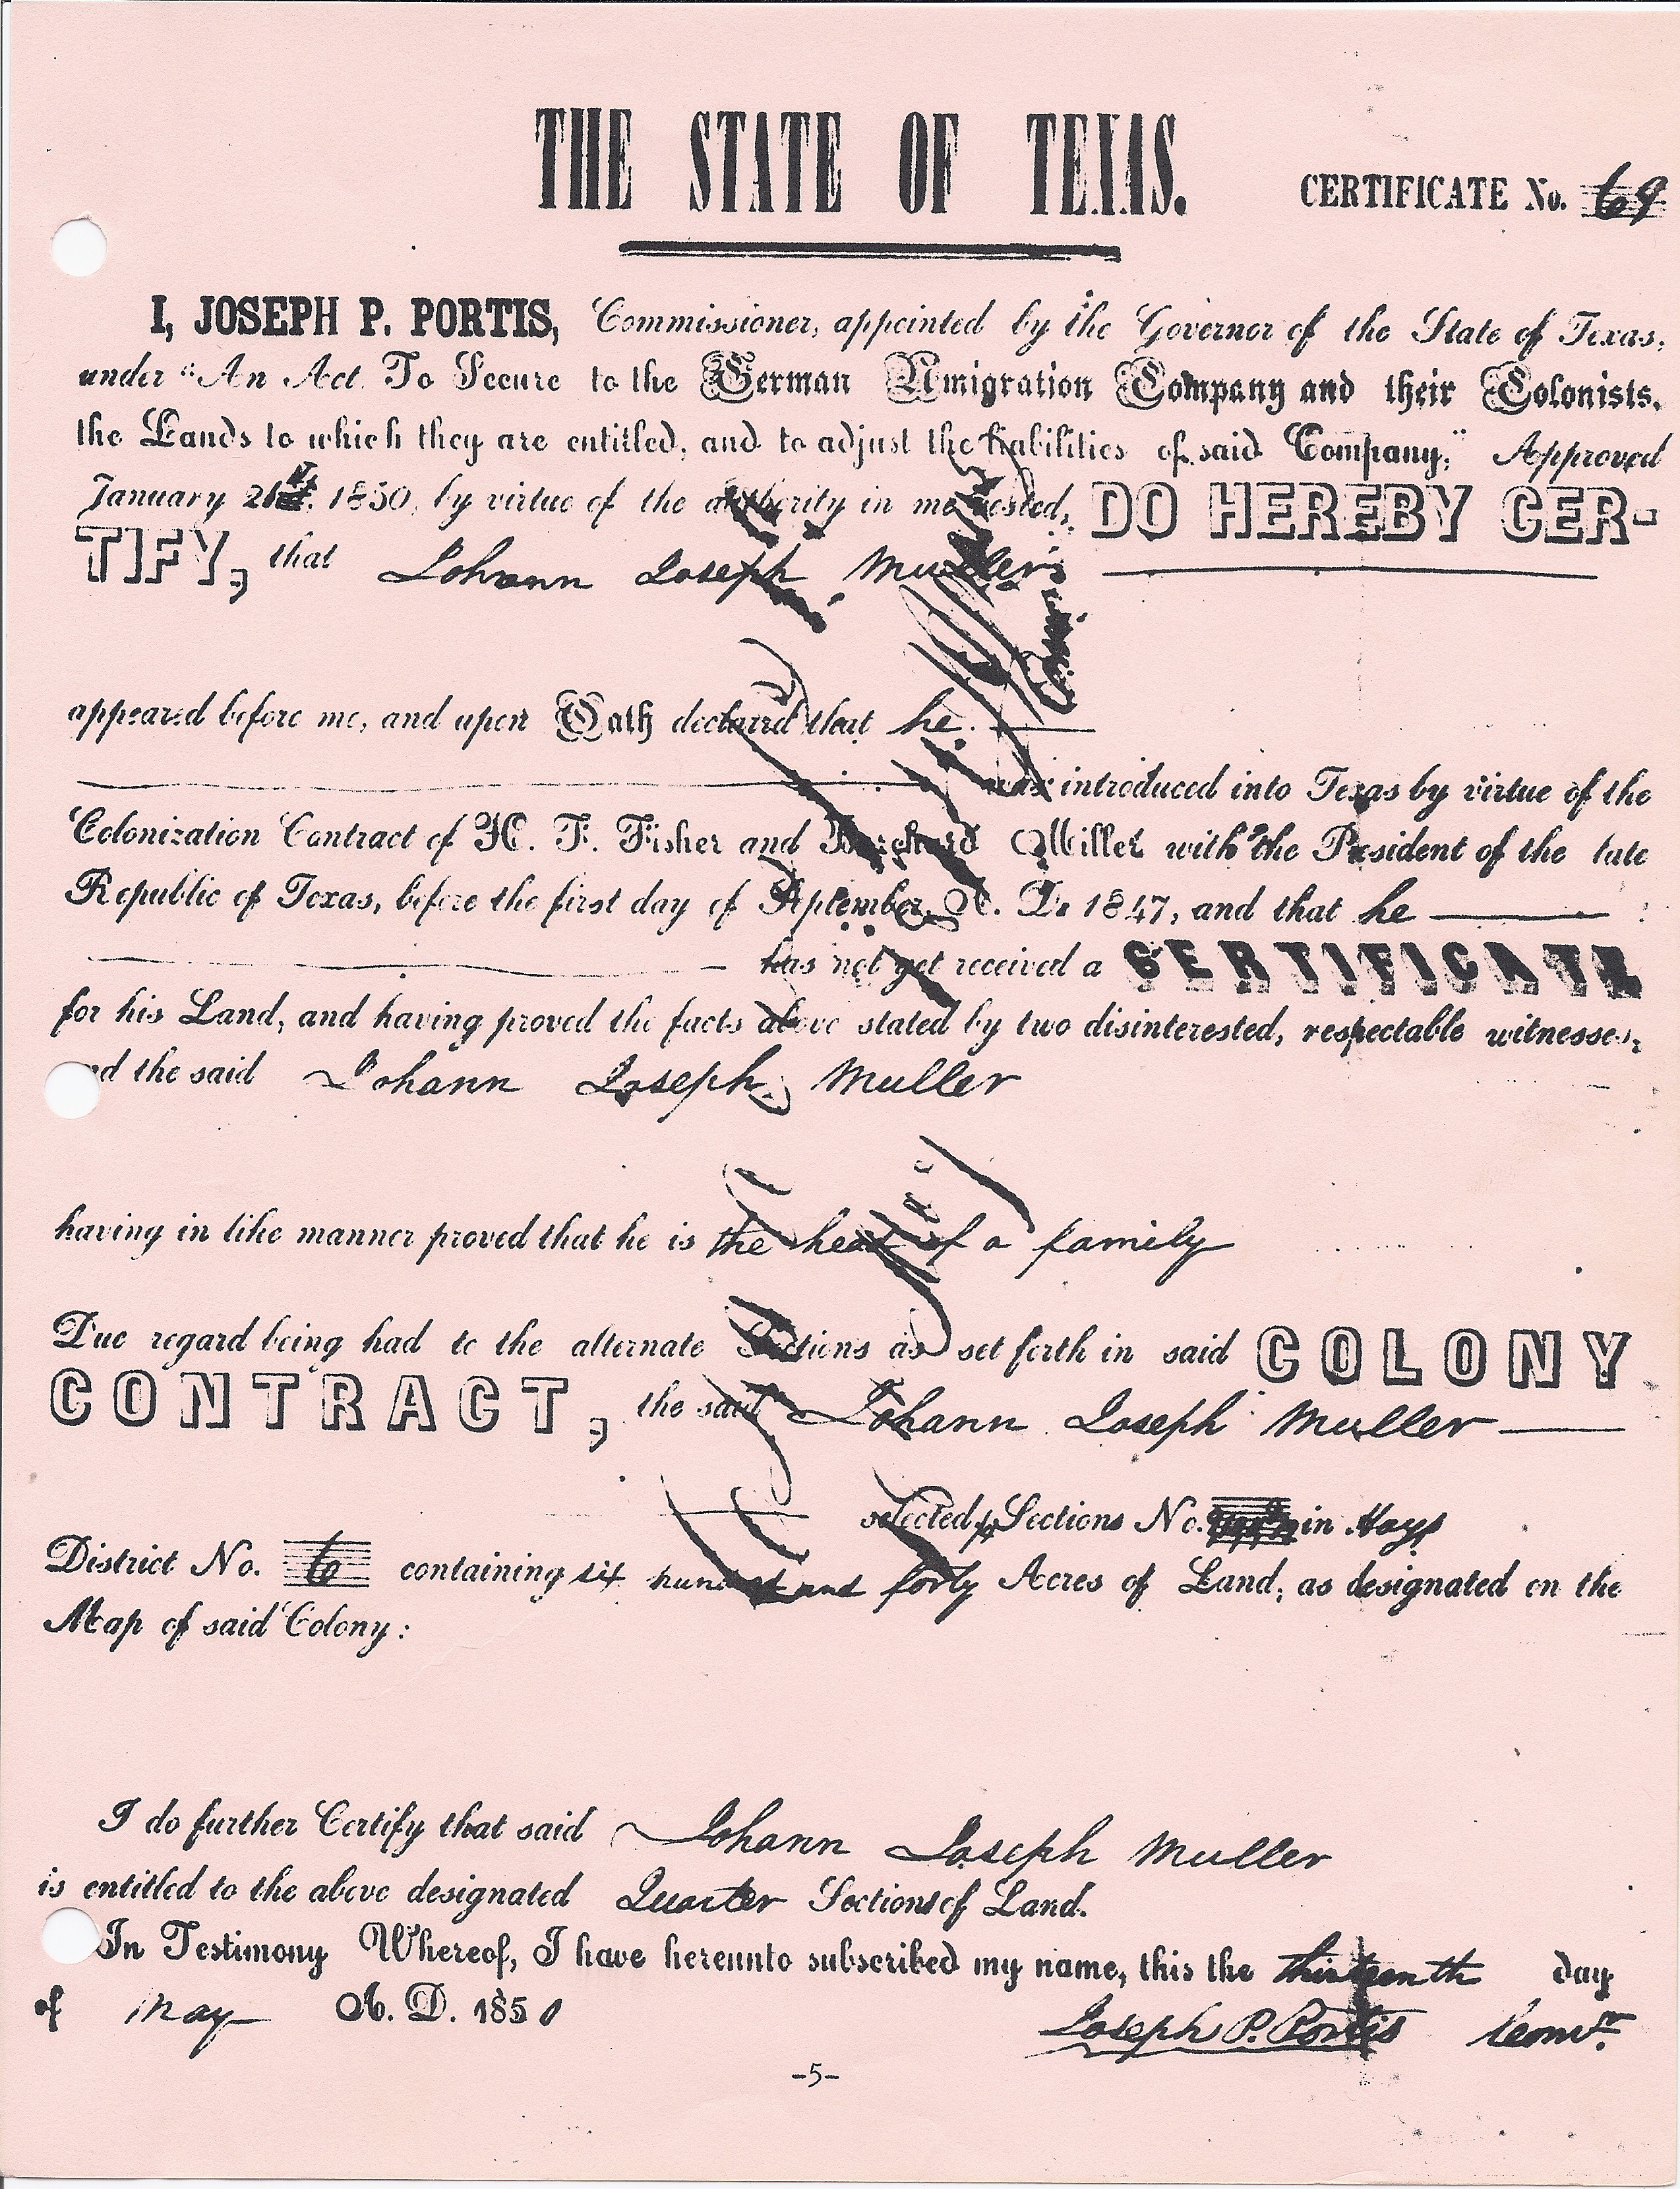 THE STATE OF TEXAS.
CERTIFICATE No. 69
I, JOSEPH P. PORTIS, Commissioner, appointed by the Governor of the State of Texas,
under "An Act To Secure to the German Emigration Company and their Colonists,
the Lands to which they are entitled, and to adjust the liabilities of said Company," Approved
January 21st, 1850, by virtue of the authority in me vested, DO HEREBY CER-
TIFY, that Johann Joseph Muller
appeared before me, and upon Oath declared that he
was introduced into Texas by virtue of the
Colonization Contract of H. F. Fisher and Burchard Miller with the President of the late
Republic of Texas, before the first day of September, A. D. 1847, and that he
has not yet received a CERTIFICATE
for his Land, and having proved the facts above stated by two disinterested, respectable witnesses,
nd the said Johann Joseph Muller
having in like manner proved that he is the head of a family
Due regard being had to the alternate Sections as set forth in said COLONY
CONTRACT, the said Johann Joseph Muller
selected Sections No. in Hays
District No. 6 containing six hundred and forty Acres of Land, as designated on the
Map of said Colony:
I do further Certify that said Johann Joseph Muller
is entitled to the above designated Quarter Sections of Land.
In Testimony Whereof, I have hereunto subscribed my name, this the thirteenth day
of May A. D. 1850
Joseph P. Portis Comr.
-5-